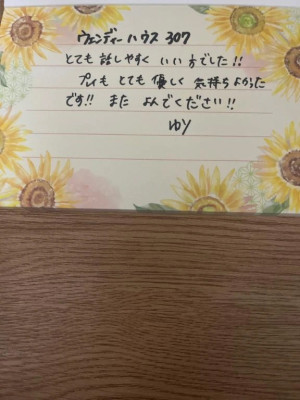 ウェンディーハウス 307
とても話しやすく いい方でした!!
プレイも とても 優しく 気持ちよかった
です!! また よんでください!!
ゆり